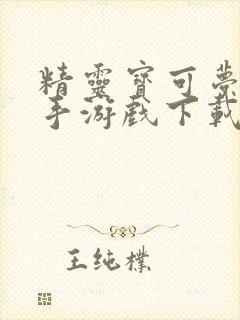 精靈寶可夢
手游戲下載
王纯樸